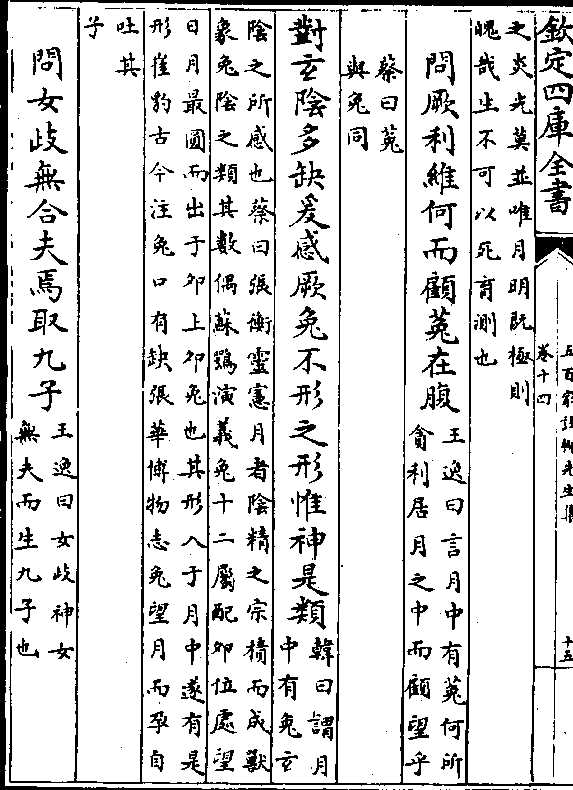 欽定四庫全書
五百家註柳先生集
卷十四
十五
之炎光莫並唯月明既極則
魄哉生不可以死育測也
問厥利維何而顧菟在腹
王逸曰言月中有菟何所
貪利居月之中而顧望乎
蔡曰菟
與兔同
對玄陰多缺爰感厥兔不形之形惟神是類
韓曰謂月
中有兔玄
陰之所感也蔡曰張衡靈憲月者陰精之宗積而成獸
象兔陰之類其數偶蘇鶚演義兔十二屬配卯位處望
日月最圓而出于卯上卯兔也其形入于月中遂有是
形崔豹古今注兔口有缺張華博物志兔望月而孕自
吐其
子
問女歧無合夫焉取九子
王逸曰女歧神女
無夫而生九子也